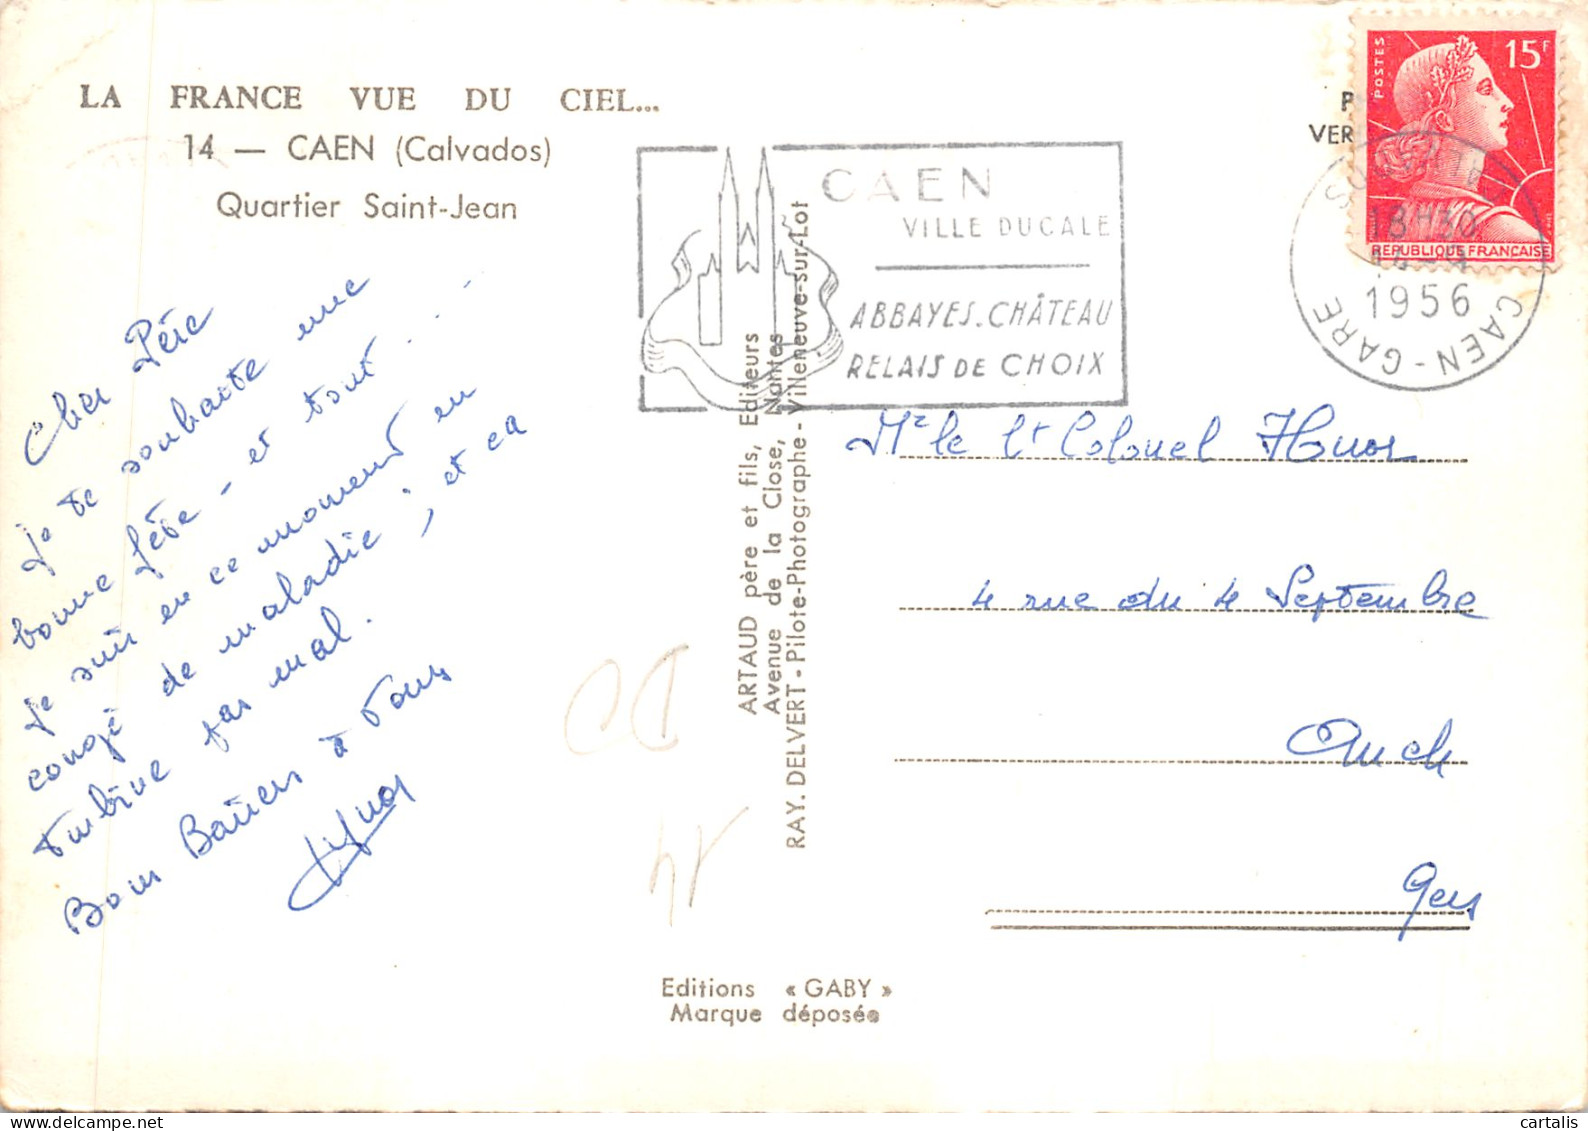 LA FRANCE VUE DU CIEL...
14 — CAEN (Calvados)
Quartier Saint-Jean
Cher Père
je te souhaite une
bonne fête - et tout . . .
je suis en ce moment en
congé de maladie ; et ça
turbine pas mal.
Bons Baisers à tous
ARTAUD père et fils, Editeurs
Avenue de la Close, Nantes
RAY. DELVERT - Pilote-Photographe - Villeneuve-sur-Lot
Editions « GABY »
Marque déposée
CAEN
VILLE DUCALE
ABBAYES. CHÂTEAU
RELAIS DE CHOIX
P
VER
POSTES
15F
REPUBLIQUE FRANÇAISE
18 H30
1956
CAEN-GARE
Mr le Lt Colonel
4 rue du 4 Septembre
Auch
Gers
cartalis